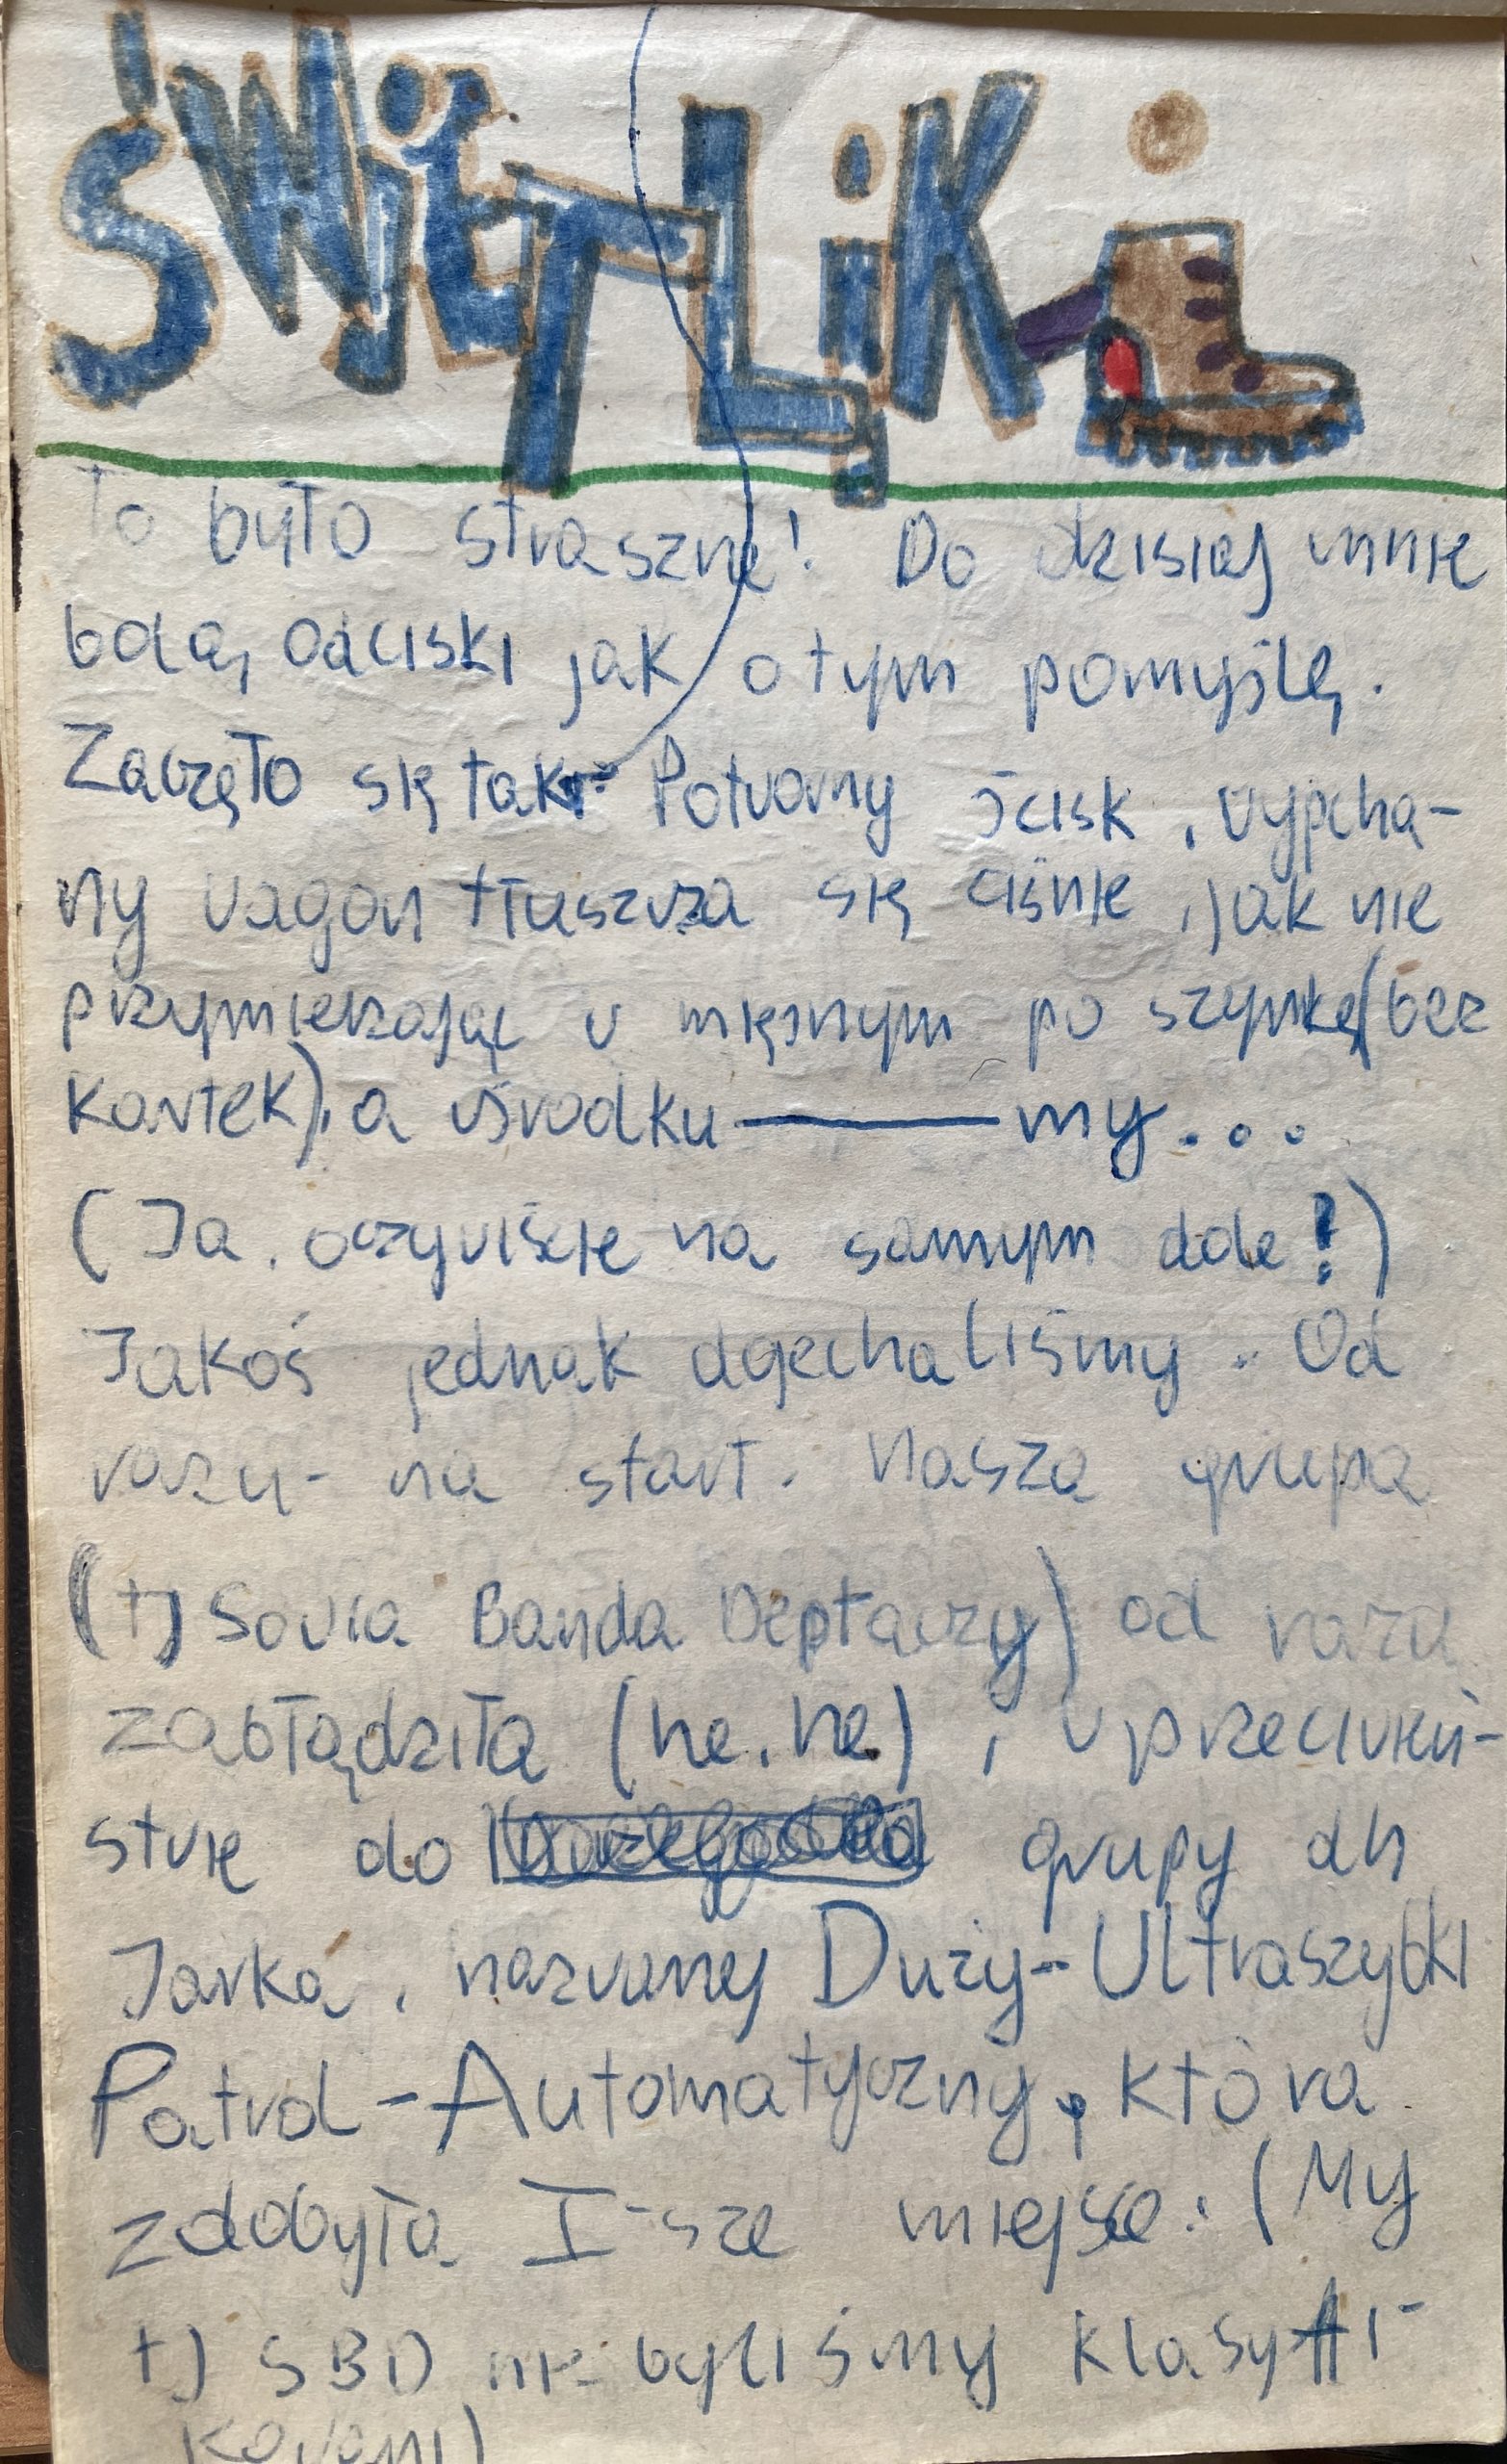 ŚWIĘTLIKi
To było straszne! Do dzisiaj mnie
bolą odciski jak o tym pomyślę.
Zaczęło się tak: Potworny ścisk, wypcha-
ny wagon tłuszcza się ciśnie, jak nie
przymierzając w mięsnym po szynkę (bez
kartek), a w środku — my...
(Ja, oczywiście na samym dole!)
Jakoś jednak dojechaliśmy. Od
razu - na start. Nasza grupa
(+) Sowia Banda Deptaczy) od razu
zabłądziła (he, he), w przeciwień-
stwie do grupy dh
Jarka, nazwanej Duży-Ultraszybki
Patrol-Automatyczny, która
zdobyła I-sze miejsce. (My
+) SBD nie byliśmy klasyfi-
kowani)